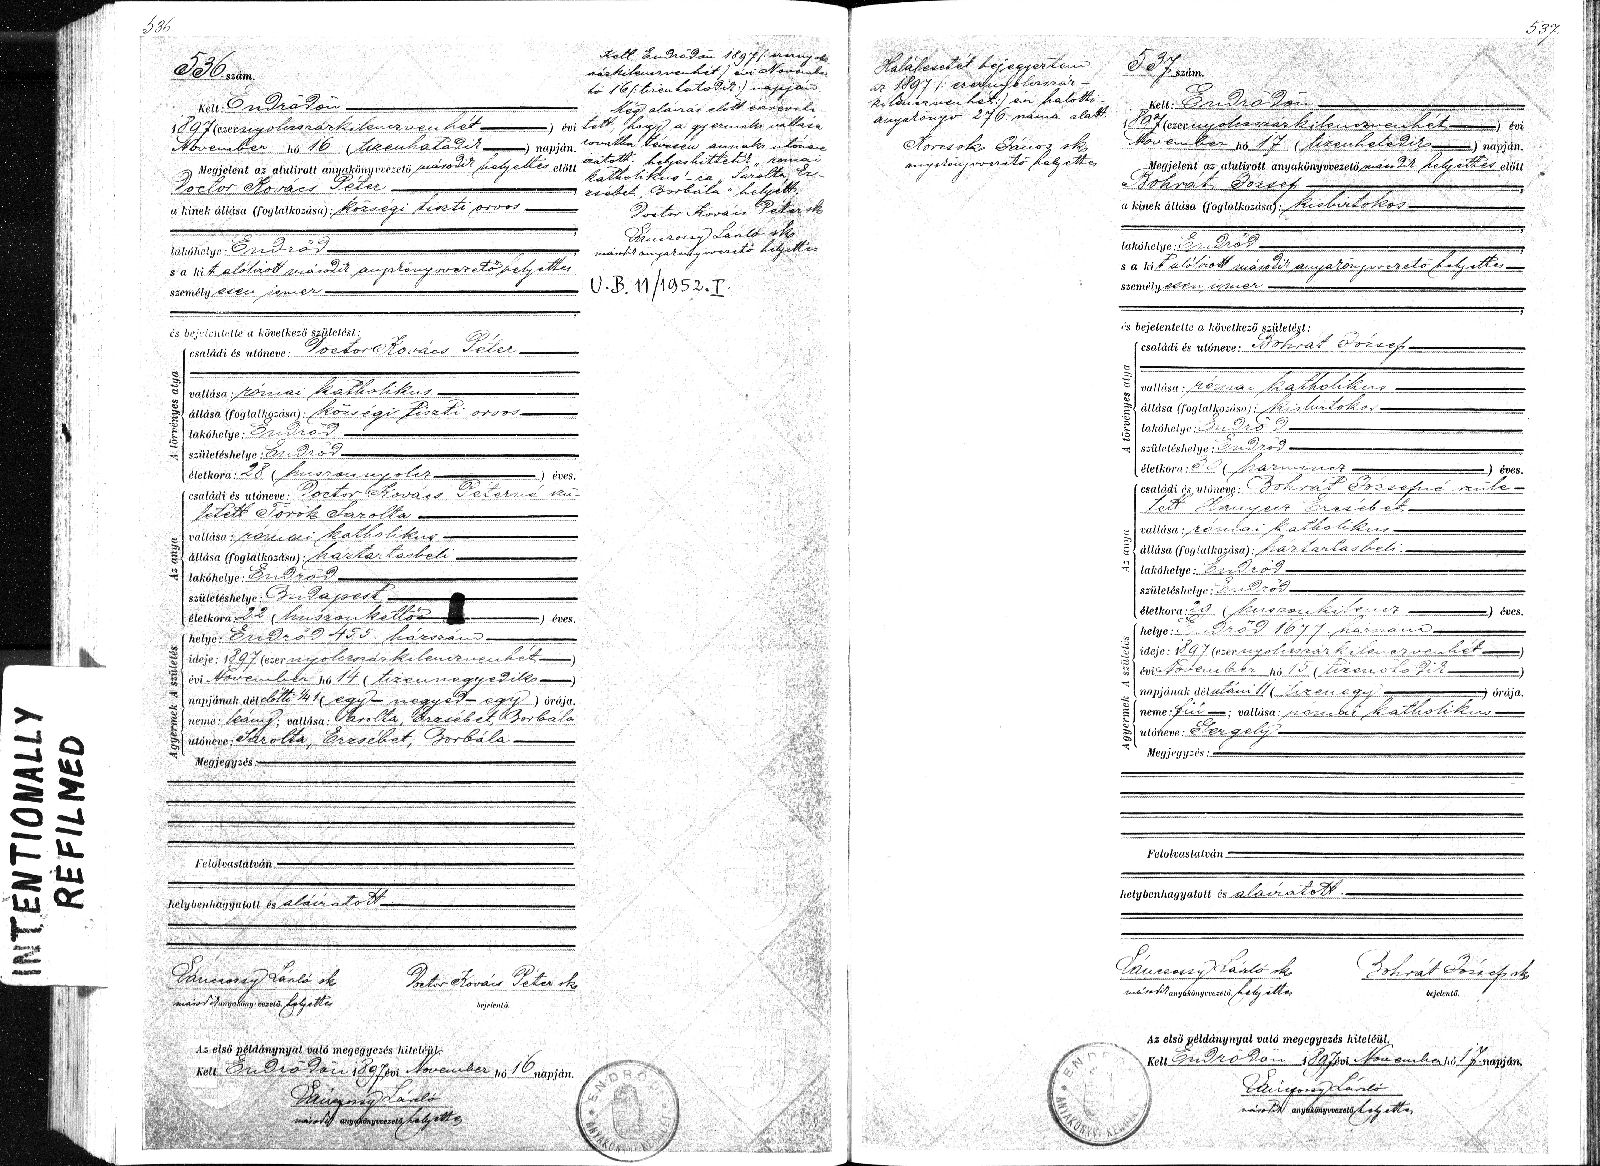 536
536 szám.
Kelt: Endrődön
1897 (ezernyolcszázkilenczvenhét) évi
November hó 16 (tizenhatodik) napján.
Megjelent az alulirott anyakönyvvezető második helyettes előtt
Doctor Kovács Péter
a kinek állása (foglalkozása): községi tiszti orvos
lakóhelye: Endrőd
s a kit alólirott második anyakönyvvezető helyettes
személyesen ismer
és bejelentette a következő születést:
A törvényes atya
családi és utóneve: Doctor Kovács Péter
vallása: római katholikus
állása (foglalkozása): községi tiszti orvos
lakóhelye: Endrőd
születéshelye: Endrőd
életkora: 28 (huszonnyolcz) éves.
Az anya
családi és utóneve: Doctor Kovács Péterné szü-
letett Török Sarolta
vallása: romai katholikus
állása (foglalkozása): háztartásbeli
lakóhelye: Endrőd
születéshelye: Budapest
életkora: 22 (huszonkettő) éves.
A születés
helye: Endrőd 455 házszám
ideje: 1897 (ezernyolczszázkilenczvenhét)
évi November hó 14 (tizennegyedik)
napjának délelőtti ¼1 (egy negyed egy) órája.
A gyermek
neme: leány; vallása: Sarolta, Erzsébet, Borbála
utóneve: Sarolta, Erzsébet, Borbála
Megjegyzés:
Felolvastatván
helybenhagyatott és aláiratott
Láncsony László sk
második anyakönyvvezető helyettes
Doctor Kovács Péter sk
bejelentő.
Az első példánynyal való megegyezés hiteléül,
Kelt Endrődön 1897 évi November hó 16 napján.
László
második anyakönyvvezető helyettes
Kelt Endrődön 1897 (ezernyolcz-
százkilenczvenhét) évi November
hó 16 (tizenhatodik) napján
Még aláirás előtt észrevéte-
tett, hogy a gyermek vallása
rovatba
helyesbittetik "római
katholikus"-ra "Sarolta, Er-
zsébet, Borbála" helyett.
Doctor Kovács Péter sk
László sk
második anyakönyvvezető helyettes
U.B. 11/1952. I.
ENDRŐD
ANYAKÖNYVI KERÜLET
537.
Halálesetét bejegyeztem
az 1897 (ezernyolczszáz-
kilenczvenhét) évi halotti
anyakönyv 276 száma alatt.
János sk
anyakönyvvezető helyettes
537. szám.
Kelt: Endrődön
1897 (ezernyolczszázkilenczvenhét) évi
November hó 17 (tizenhetedik) napján.
Megjelent az alulirott anyakönyvvezető második helyettes előtt
Bohrát József
a kinek állása (foglalkozása): kisbirtokos
lakóhelye: Endrőd
s a kit alólirott második anyakönyvvezető helyettes
személyesen ismer
és bejelentette a következő születést:
A törvényes atya
családi és utóneve: Bohrát József
vallása: római katholikus
állása (foglalkozása): kisbirtokos
lakóhelye: Endrőd
születéshelye: Endrőd
életkora: 30 (harmincz) éves.
Az anya
családi és utóneve: Bohrát Józsefné szüle-
tett Hanyecz Erzsébet
vallása: romai katholikus
állása (foglalkozása): háztartásbeli
lakóhelye: Endrőd
születéshelye: Endrőd
életkora: 29 (huszonkilencz) éves.
A születés
helye: Endrőd 1677 házszám
ideje: 1897 (ezernyolczszázkilenczvenhét)
évi November hó 15 (tizenötödik)
napjának délutáni 11 (tizenegy) órája.
A gyermek
neme: fiú; vallása: romai katholikus
utóneve: Gergely
Megjegyzés:
Felolvastatván
helybenhagyatott és aláiratott
Láncsony László sk
második anyakönyvvezető helyettes
Bohrát József sk
bejelentő.
Az első példánynyal való megegyezés hiteléül,
Kelt Endrődön 1897 évi November hó 17 napján.
László
második anyakönyvvezető helyettes
ENDRŐD
ANYAKÖNYVI KERÜLET
INTENTIONALLY
REFILMED